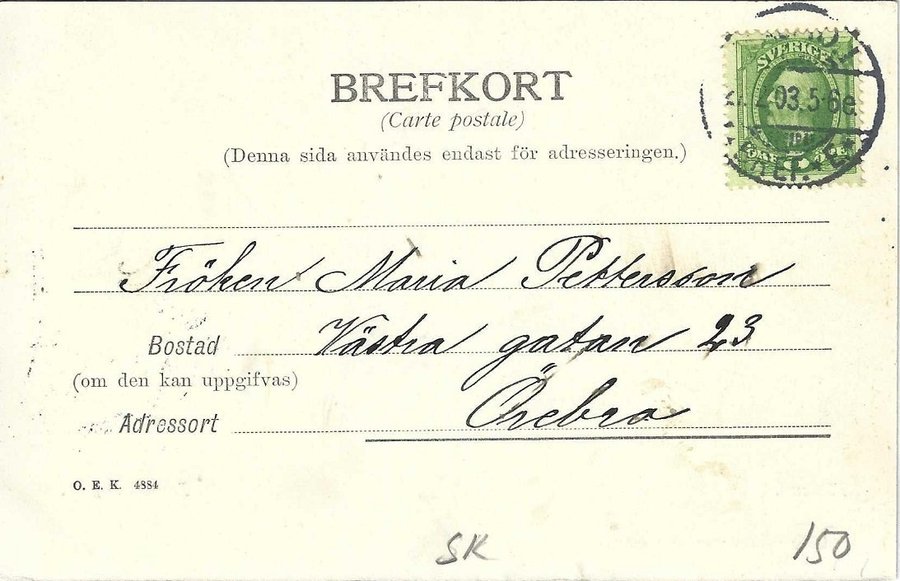 BREFKORT
(Carte postale)
(Denna sida användes endast för adresseringen.)
SVERIGE
03.5-6e
ÖRE
Fröken Maria Pettersson
Bostad Västra gatan 23
(om den kan uppgifvas)
Adressort Örebro
O. E. K. 4884
SK 150